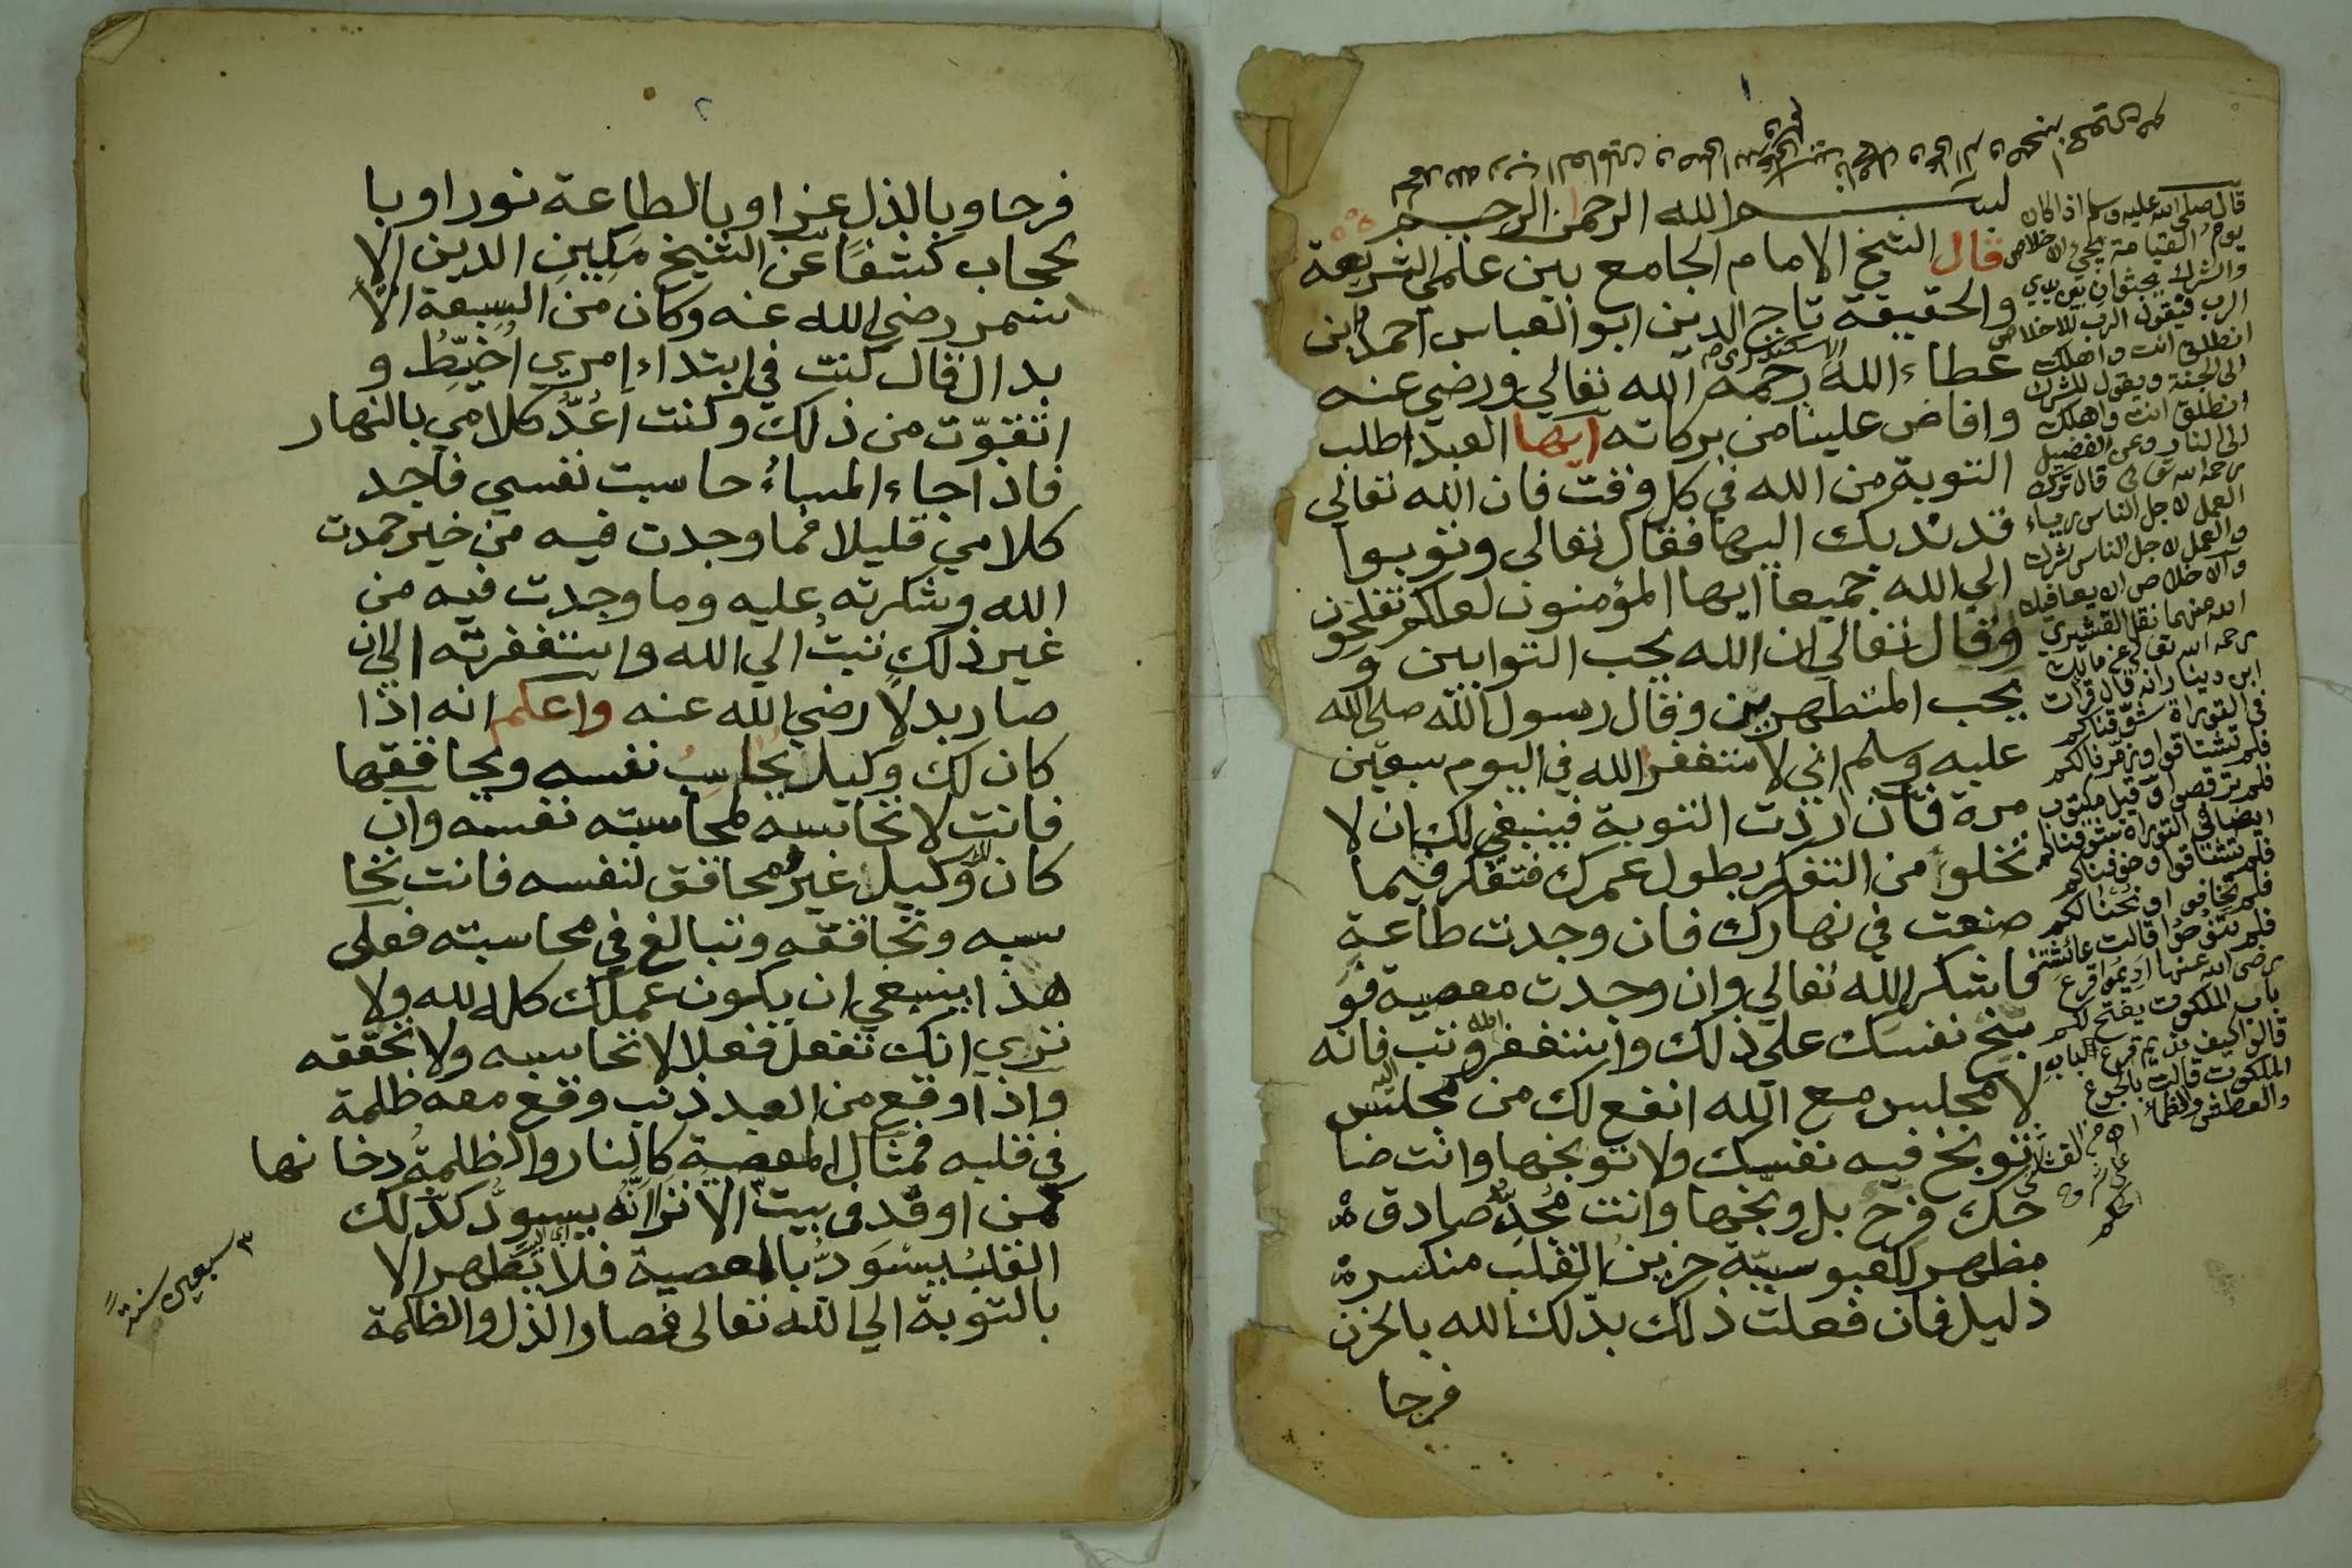 ١
بسم الله الرحمن الرحيم
قال الشيخ الامام الجامع بين علمي الشريعة
والحقيقة تاج الدين ابو العباس احمد ابن
عطاء الله الاسكندري رحمه الله تعالي ورضي عنه
وافاض علينا من بركاته ايها العبد اطلب
التوبة من الله في كل وقت فان الله تعالى
قد ندبك اليها فقال تعالى وتوبوا
الي الله جميعا ايها المؤمنون لعلكم تفلحون
وقال تعالي ان الله يحب التوابين و
يحب المتطهرين وقال رسول الله صلى الله
عليه وسلم اني لاستغفر الله في اليوم سبعين
مرة فان اردت التوبة فينبغي لك ان لا
تخلو من التفكر بطول عمرك فتفكر فيما
صنعت في نهارك فان وجدت طاعة
فاشكر الله تعالي وان وجدت معصية فو
بخ نفسك على ذلك واستغفر الله وتب فانه
لا مجلس مع الله انفع لك من مجلس
توبخ فيه نفسك ولا توبخها وانت ضا
حك فرح بل وبخها وانت مجد صادق
مظهر للعبوسية حزين القلب منكسر
ذليل فان فعلت ذلك بدلك الله بالحزن
فرحا
قال صلى الله عليه وسلم اذا كان
يوم القيامة يجئ الاخلاص
والشرك يجثوان بين يدي
الرب فيقول الرب للاخلاص
انطلق انت واهلك
الى الجنة ويقول للشرك
انطلق انت واهلك
الى النار وعن الفضيل
رحمه الله تعالى قال ترك
العمل لاجل الناس رياء
والعمل لاجل الناس شرك
والاخلاص ان يعافيك
الله منهما نقل القشيري
رحمه الله تعالى عن مالك
ابن دينار انه قال قرأت
في التوراة شوقناكم
فلم تشتاقوا وزمرنا لكم
فلم ترقصوا وقيل مكتوب
ايضا في التوراة شوقناكم
فلم تشتاقوا وخوفناكم
فلم تخافوا ونحنا لكم
فلم تنوحوا قالت عائشة
رضي الله عنها اديموا قرع
باب الملكوت يفتح لكم
قالوا كيف نديم قرع الباب
الملكوت قالت بالجوع
والعطش والظمأ
٢
فرحا وبالذل عزا وبالطاعة نورا وبا
لحجاب كشفا عن الشيخ مكين الدين الا
سمر رضي الله عنه وكان من السبعة الا
بدال قال كنت في ابتداء امري اخيط و
اتقوت من ذلك وكنت اعد كلامي بالنهار
فاذا جاء المساء حاسبت نفسي فاجد
كلامي قليلا فما وجدت فيه من خير حمدت
الله وشكرته عليه وما وجدت فيه من
غير ذلك تبت الي الله واستغفرته الي ان
صار بدلا رضي الله عنه واعلم انه اذا
كان لك وكيل يحاسب نفسه ويحاققها
فانت لا تحاسبه لمحاسبته نفسه وان
كان لك وكيل غير محاقق لنفسه فانت تحا
سبه وتحاققه وتبالغ في محاسبته فعلى
هذا ينبغي ان يكون عملك كله لله ولا
تري انك تفعل فعلا لا تحاسبه ولا تحققه
واذا وقع من العبد ذنب وقع معه ظلمة
في قلبه فمثال المعصية كالنار والظلمة دخانها
كمن اوقد في بيت الا ترا انه يسود كذلك
القلب يسود بالمعصية فلا يطهر الا
بالتوبة الي الله تعالى فصار الذل والظلمة
٣ سبعين سنة